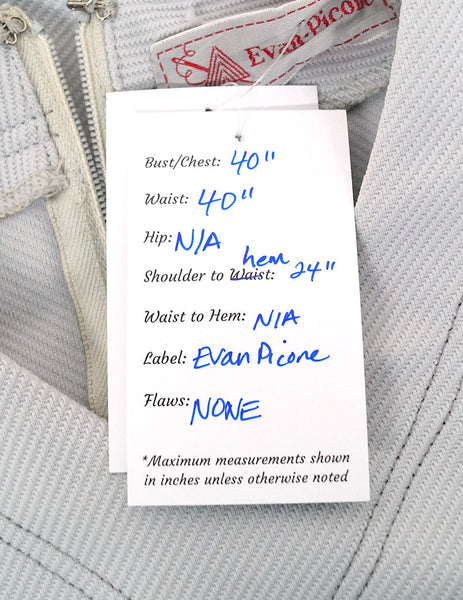 Evan-Picone
Bust/Chest: 40"
Waist: 40"
Hip: N/A
hem
Shoulder to Waist: 24"
Waist to Hem: N/A
Label: Evan Picone
Flaws: NONE
*Maximum measurements shown
in inches unless otherwise noted